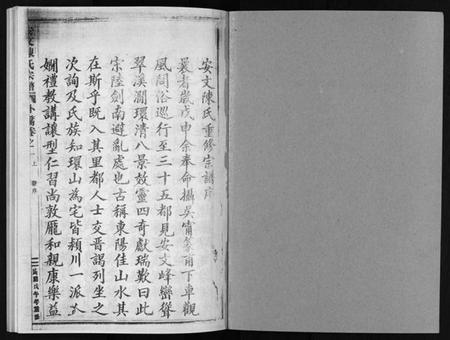 安文陳氏重修宗譜序
曩者歲戊申余奉命攝吳甯篆甫下車觀
風問俗巡行至三十五都見安文峰巒聳
翠溪澗環清八景效靈四奇獻瑞歎曰此
宗陸劍南避亂處也古稱東陽佳山水其
在斯乎既入其里都人士交晋謁列坐之
次詢及氏族知環山為宅皆潁川一派
嫻禮教講讓型仁習尚敦龐和親康樂益
安文陳氏宗譜 卷之 上